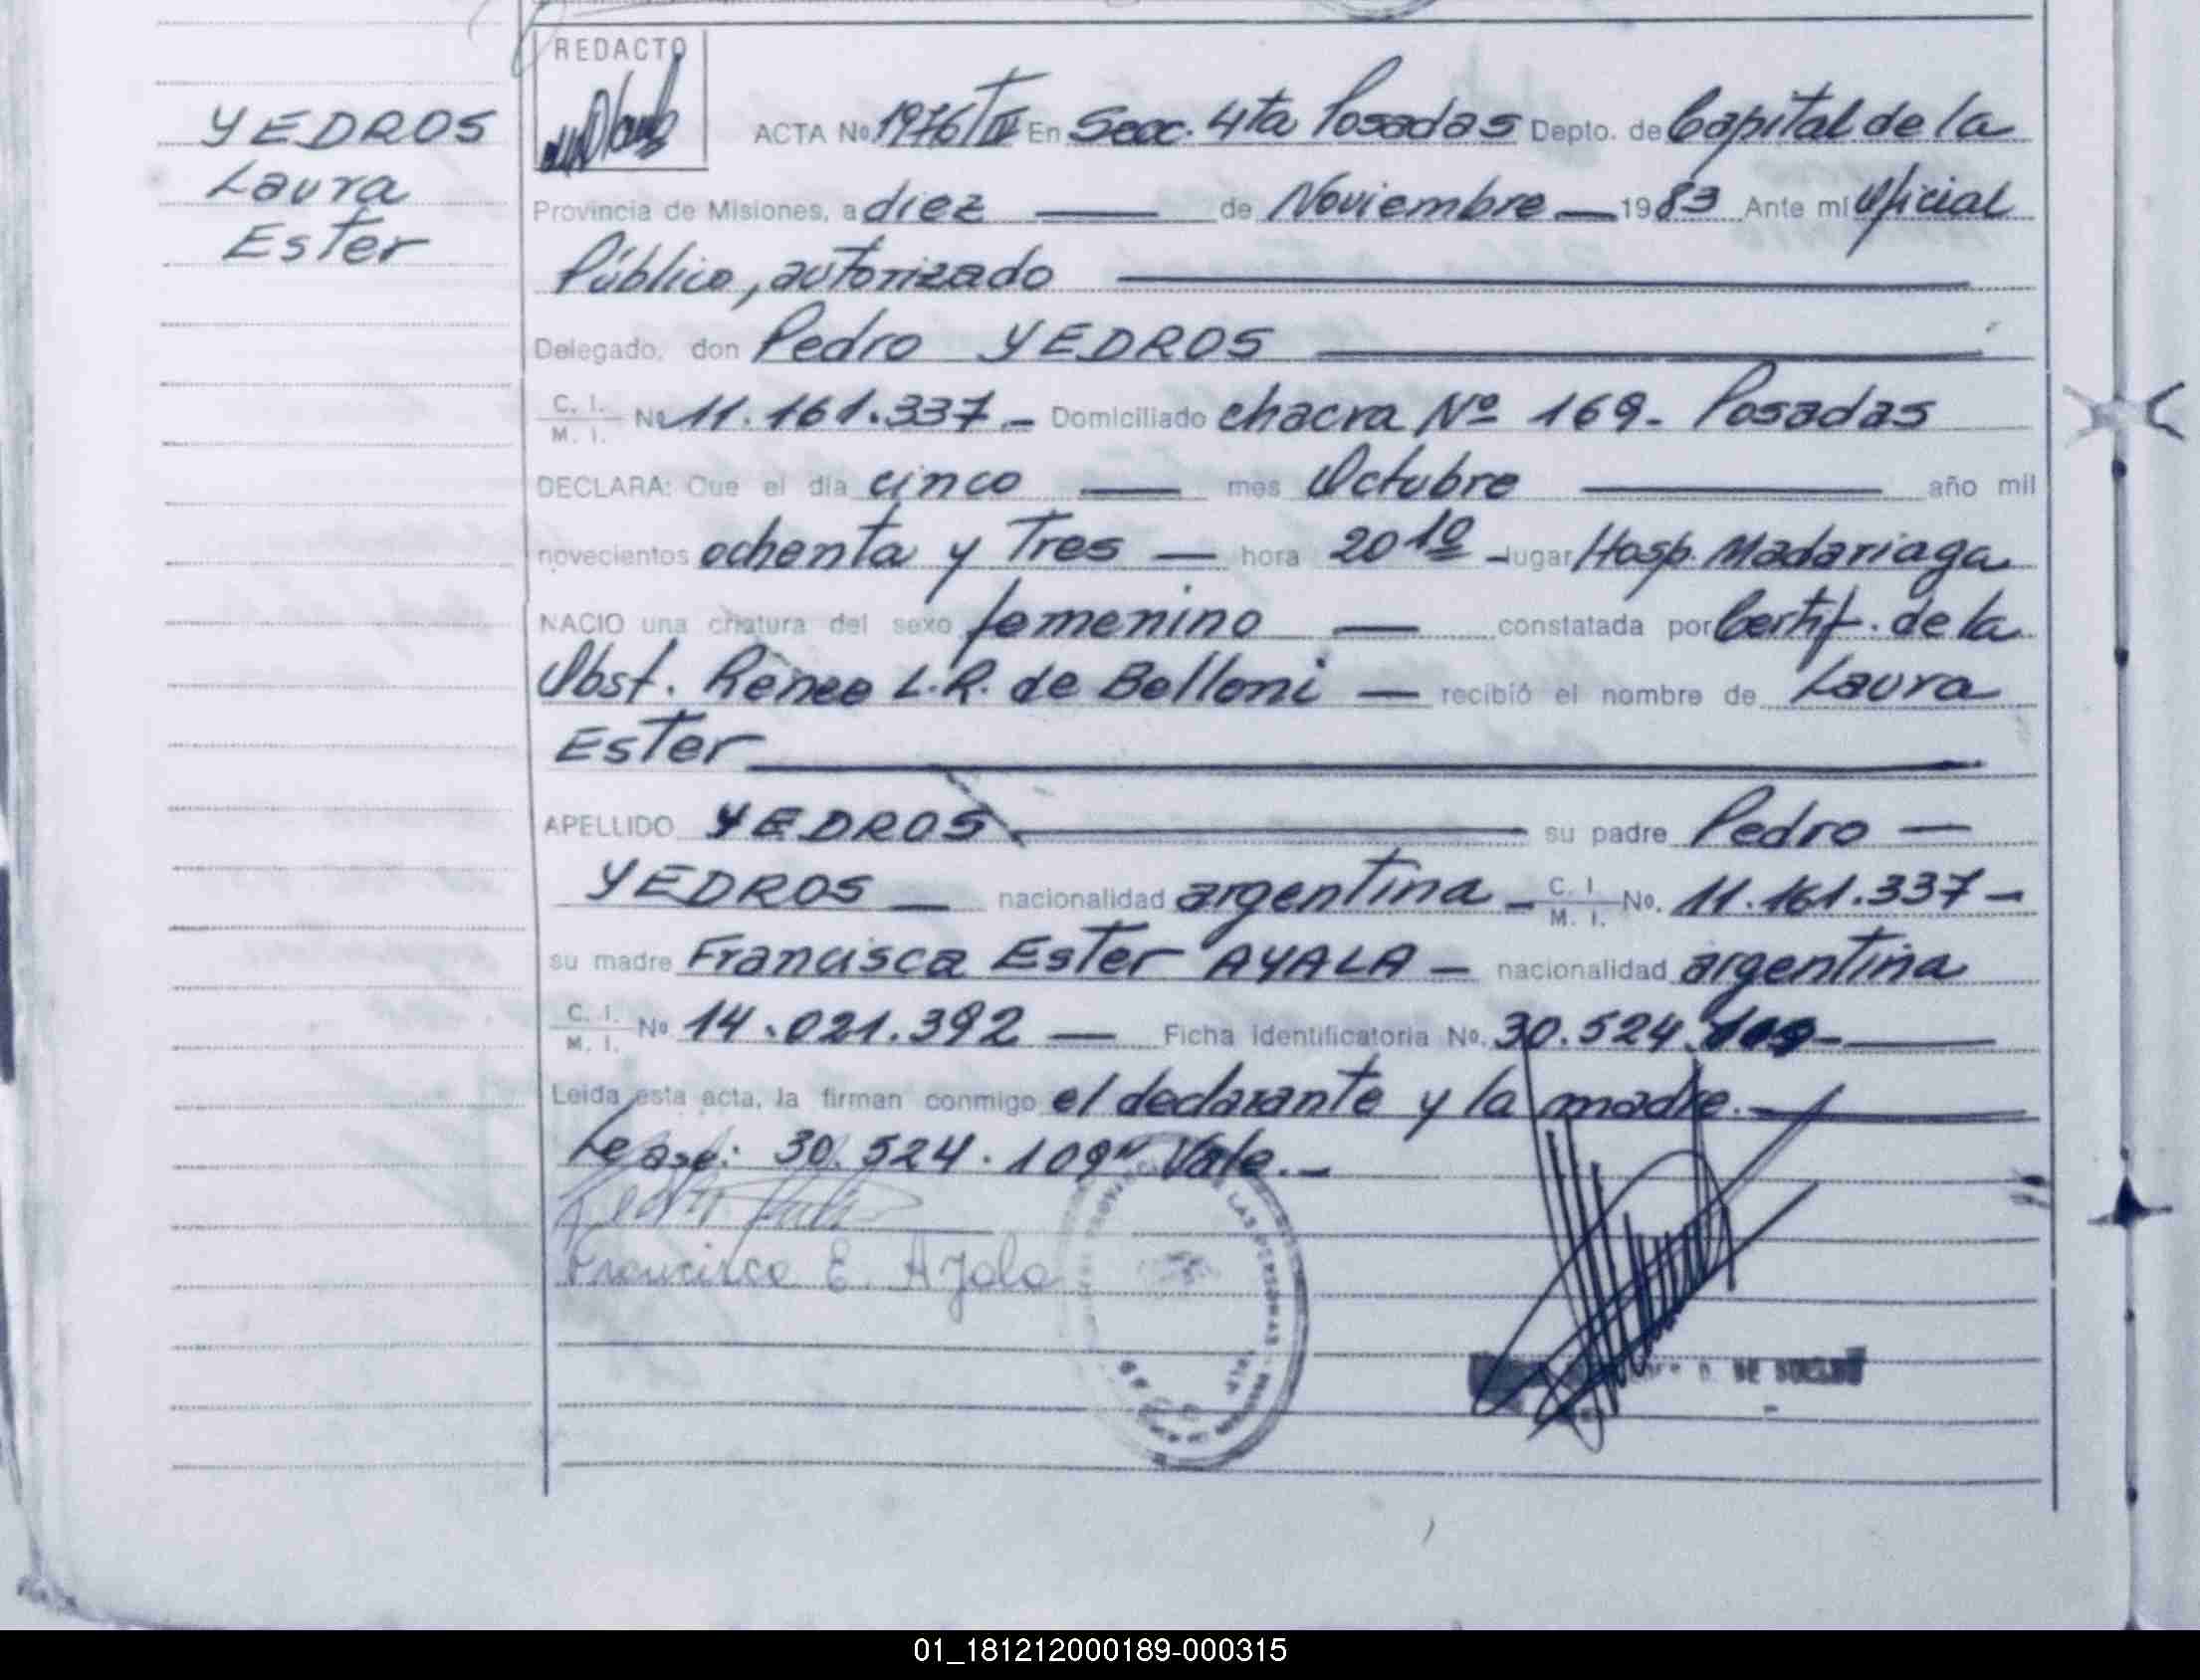 REDACTO
YEDROS
Laura
Ester
ACTA No 1976/III En Secc. 4ta Posadas Depto. de Capital de la
Provincia de Misiones, a diez — de Noviembre — 1983 Ante mi Oficial
Público, autorizado
Delegado, don Pedro YEDROS
C. I. / M. I. No 11.161.337.- Domiciliado chacra Nº 169- Posadas
DECLARA: Que el día cinco — mes Octubre — año mil
novecientos ochenta y Tres — hora 20 10 - lugar Hosp. Madariaga
NACIO una criatura del sexo femenino — constatada por Certif. de la
Obst. Renee L.R. de Belloni — recibió el nombre de Laura
Ester
APELLIDO YEDROS — su padre Pedro —
YEDROS — nacionalidad argentina - C. I. / M. I. No. 11.161.337-
su madre Francisca Ester AYALA - nacionalidad argentina
C. I. / M. I. No 14.021.392 — Ficha identificatoria No. 30.524.
Leída esta acta, la firman conmigo el declarante y la madre.-
Lease: 30.524.109" Vale.-
Francisca E. Ayala
LAS PERSONAS
01_181212000189-000315